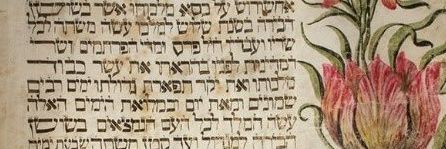 אחשורוש על כסא מלכותו אשר בשושן
הבירה בשנת שלוש למלכו עשה משתה לכל
שריו ועבדיו חיל פרס ומדי הפרתמים ושרי
המדינות לפניו בהראתו את עשר כבוד
מלכותו ואת יקר תפארת גדולתו ימים רבים
שמונים ומאת יום ובמלואת הימים האלה
עשה המלך לכל העם הנמצאים בשושן
הבירה למגדול ועד קטן משתה שבעת ימים